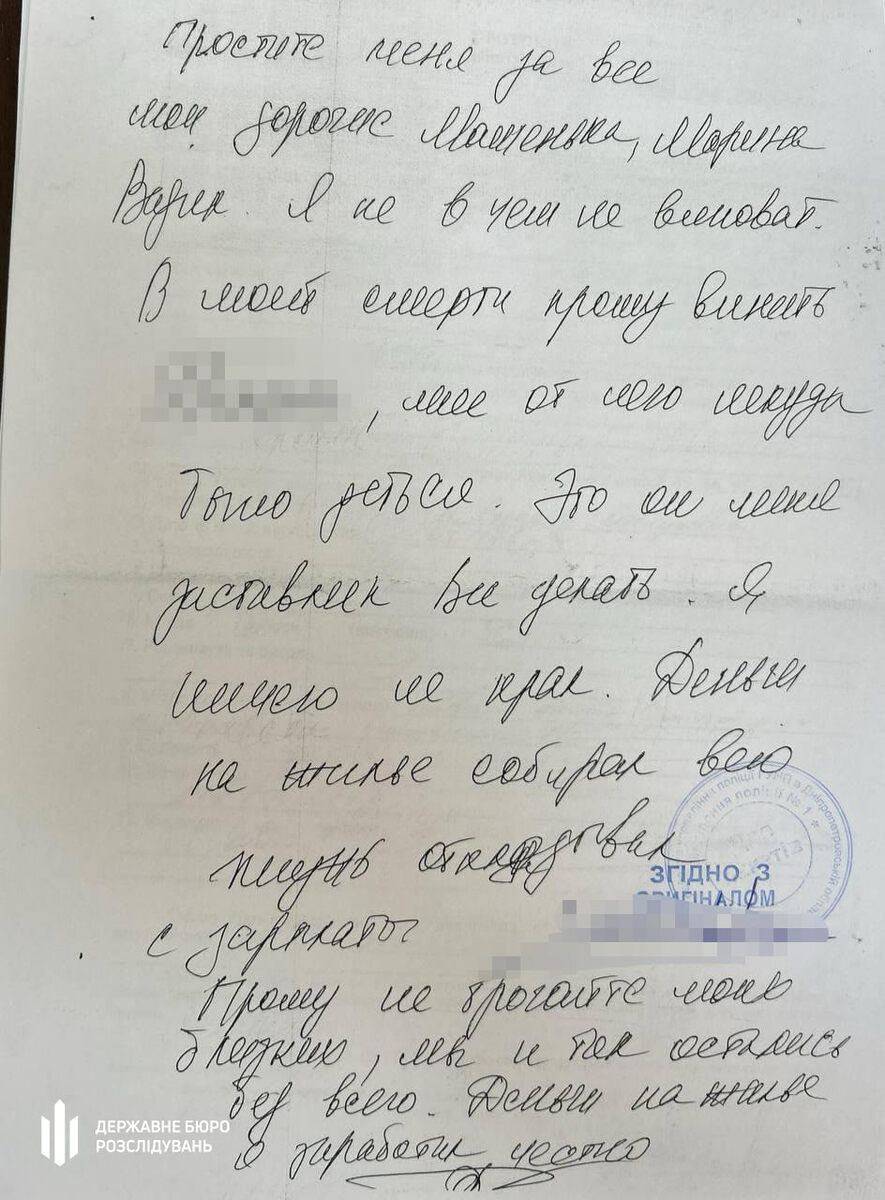 Простите меня за все
мои дорогие Машенька, Марина
Вадик. Я не в чем не виноват.
В моей смерти прошу винить
, мне от него некуда
было деться. Это он меня
заставлял Все делать. Я
ничего не крал. Деньги
на жилье собирал всю
жизнь откладывал
ЗГІДНО З
ОРИГІНАЛОМ
с зарплаты
Прошу не трогайте моих
близких, мы и так остались
без всего. Деньги на жилье
я заработал честно
ДЕРЖАВНЕ БЮРО
РОЗСЛІДУВАНЬ